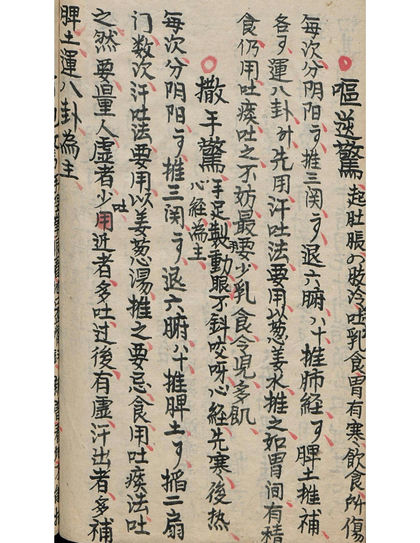 嘔逆驚 起肚脹四肢冷吐乳食胃有寒飲食所傷
每次分阴阳可推三関可退六腑八十推肺経可脾土推補
各可運八卦外先用汗吐法要用以葱姜水推之如胃間有積
食仍用吐痰吐之不妨最要少乳食令児多飢
撒手驚 手足製動眼歹斜咬呀心経先寒後热
心経為主
每次分阴阳可推三関可退六腑八十推脾土可掐二扇
门数次汗吐法要用以姜葱湯推之要忌食用吐痰法吐
之然要量人虚者少用吐近者多吐过後有虚汗出者多補
脾土運八卦為主